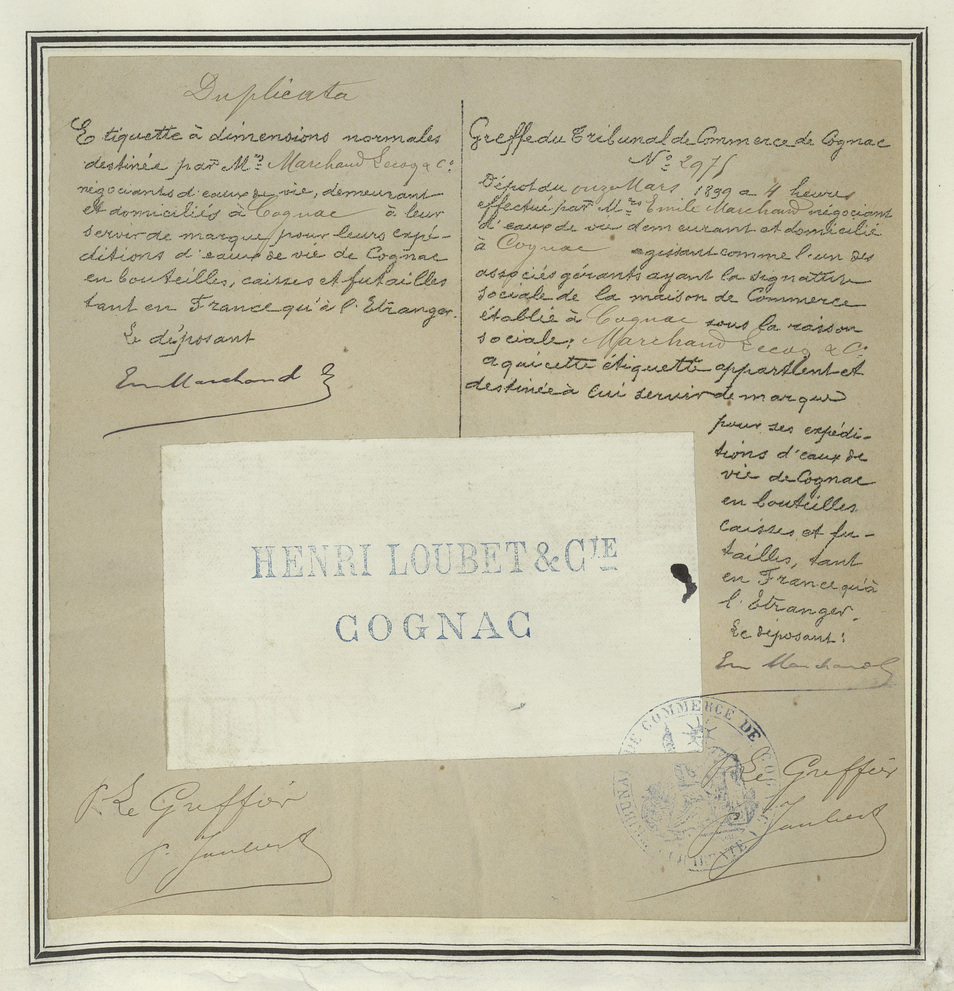 Duplicata
Etiquette à dimensions normales
destinée par Mrs Marchand Lecoq & Cie
négociants d'eaux de vie, demeurant
et domiciliés à Cognac à leur
servir de marque pour leurs expé-
ditions d'eaux de vie de Cognac
en bouteilles, caisses et futailles
tant en France qu'à l'Etranger.
Le déposant
Em Marchand
Greffe du Tribunal de Commerce de Cognac
No 2975
Dépot du onze Mars 1899 a 4 heures
effectué par Mr Emile Marchand négociant
d'eaux de vie demeurant et domicilié
à Cognac agissant comme l'un des
associés gérants ayant la signature
sociale de la maison de Commerce
établie à Cognac sous la raison
sociale: Marchand Lecoq & Cie
a qui cette étiquette appartient et
destinée à lui servir de marque
pour ses expédi-
tions d'eaux de
vie de Cognac
en bouteilles
caisses et fu-
tailles, tant
en France qu'à
l'Etranger.
Le déposant:
Em Marchand
HENRI LOUBET & CIE
COGNAC
TRIBUNAL DE COMMERCE DE COGNAC
P. Le Greffier
P. Jaubert
P. Le Greffier
P. Jaubert